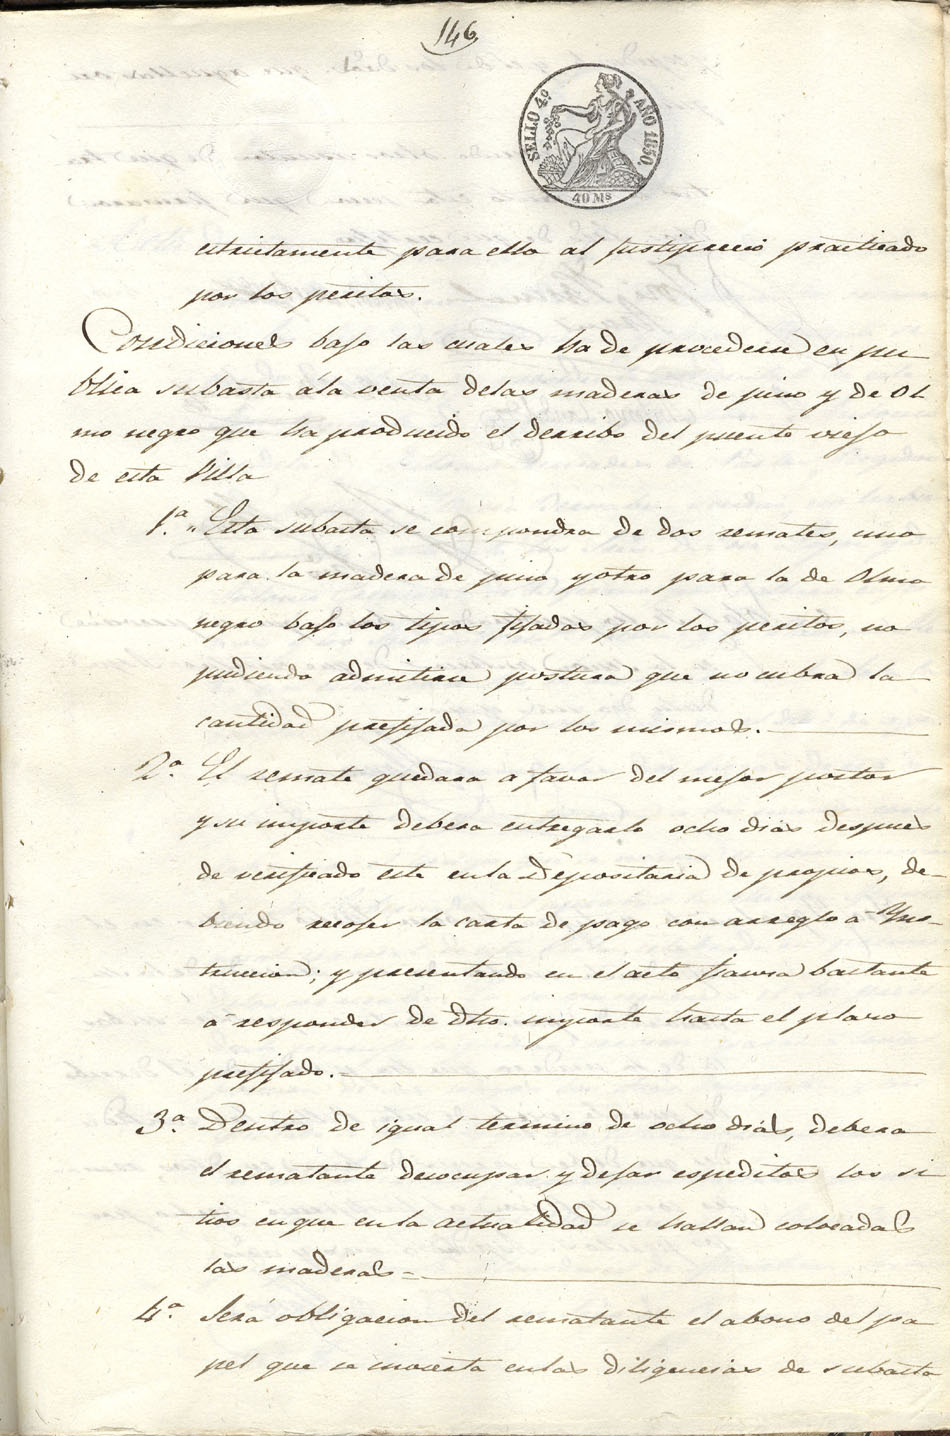 146
SELLO 4º. AÑO 1850.
40 Ms
estrictamente para ello al justiprecio practicado
por los peritos.
Condiciones bajo las cuales ha de procederse en pu
blica subasta á la venta de las maderas de pino y de Ol
mo negro que ha producido el derribo del puente viejo
de esta Villa
1.ª Esta subasta se compondra de dos remates, uno
para la madera de pino y otro para la de Olmo
negro bajo los tipos fijados por los peritos, no
pudiendo admitirse postura que no cubra la
cantidad prefijada por los mismos.
2.ª El remate quedara a favor del mejor postor
y su importe debera entregarlo ocho dias despues
de verificado este en la Depositaria de propios, de-
biendo recojer la carta de pago con arreglo a Yns-
truccion; y presentando en el acto fianza bastante
a responder de dho. importe hasta el plazo
prefijado.
3.ª Dentro de igual termino de ocho dias, debera
el rematante desocupar y dejar espeditos los si
tios en que en la actualidad se hallan colocadas
las maderas
4.ª Será obligacion del rematante el abono del pa
pel que se invierta en las diligencias de subasta